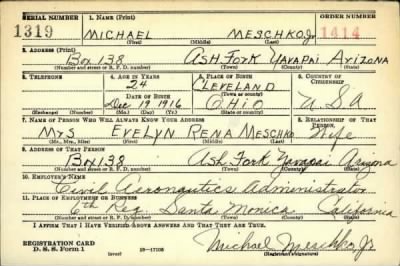 SERIAL NUMBER 1. NAME (Print) ORDER NUMBER
1319 MICHAEL MESCHKO, Jr 1414
(First) (Middle) (Last)
2. ADDRESS (Print)
Box 138 ASH FORK YAVAPAI ARIZONA
(Number and street or R. F. D. number) (Town) (County) (State)
3. TELEPHONE 4. AGE IN YEARS 5. PLACE OF BIRTH 6. COUNTRY OF CITIZENSHIP
24 CLEVELAND
DATE OF BIRTH (Town or county)
Dec 19 1916 OHIO U.S.A
(Exchange) (Number) (Mo.) (Day) (Yr.) (State or country)
7. NAME OF PERSON WHO WILL ALWAYS KNOW YOUR ADDRESS 8. RELATIONSHIP OF THAT PERSON
Mrs EVELYN RENA MESCHKO Wife
(Mr., Mrs., Miss) (First) (Middle) (Last)
9. ADDRESS OF THAT PERSON
Box 138 Ash Fork Yavapai Arizona
(Number and street or R. F. D. number) (Town) (County) (State)
10. EMPLOYER'S NAME
Civil Aeronautics Administrator
11. PLACE OF EMPLOYMENT OR BUSINESS
6th Reg. Santa Monica California
(Number and street or R. F. D. number) (Town) (County) (State)
I AFFIRM THAT I HAVE VERIFIED ABOVE ANSWERS AND THAT THEY ARE TRUE.
REGISTRATION CARD
D. S. S. Form 1 16-17105 Michael Meschko, Jr
(over) (Registrant's signature)